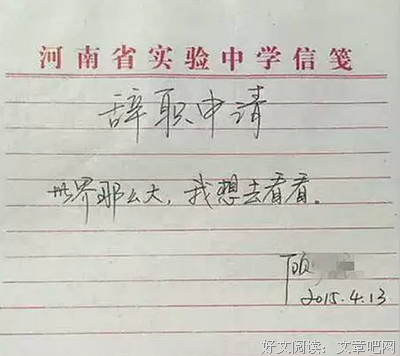 河南省实验中学信笺
辞职申请
世界那么大，我想去看看。
顾
2015.4.13
好文阅读：文章吧网